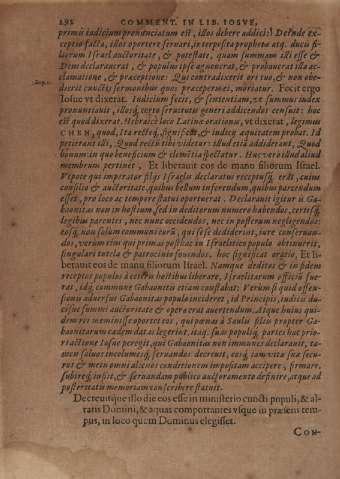 292 COMMENT. IN LIB. IOSVE,
primis iudicium pronunciatum est, illos debere addici: Deinde ex-
ceptio facta, illos oportere servari, interposita propheta atq. ducis fi-
liorum Israel auctoritate, & potestate, quam summam illi esse &
Deus declararat, & populus ipse agnoverat, & probaverat illa ac-
clamatione, & præceptione: Qui contradixerit ori tuo, & non obe-
dierit cunctis sermonibus quos præceperis ei, moriatur. Fecit ergo
Iosue vt dixerat. Iudicium facit, & sententiam, vt summus iudex
pronuntiavit, illosq, certo servitutis generi addicendos censuit: hoc
est quod dixerat. Hebraice loco Latinæ orationis, vt dixerat, legimus
CHEN, quod, Ita recteq, significat, & iudicij æquitatem probat. Id
petierant illi, Quod rectum tibi videtur: illud etiam addiderant, Quod
bonum: in quo beneficium & clementia spectatur. Huc vero illud aliud
membrum pertinet, Et liberauit eos de manu filiorum Israel.
Vtpote qui imperator filijs Israelis declaratus receptusq, erat, cuius
consilio & auctoritate, quibus bellum inferendum, quibus parcendum
esset, pro loco ac tempore statui oportuerat. Declarauit igitur is Ga-
baonitas non in hostium sed in deditorum numero habendos, certisq,
legibus parcentes, nec nunc occidendos, nec in posterum negligendos:
eosq, non solum communi eorum, qui sese dediderint, iure conseruan-
dos, verum etiam qui primas postliminio in Israelitico populo obtinuerit,
singulari tutela & patrocinio fovendos. hoc significat oratio, Et li-
berauit eos de manu filiorum Israel. Namque deditos & in fidem
receptos populos à ceteris hostibus liberare, Israelitarum officium fue-
rat, idq, commune Gabaonitis etiam constabat: Verum si quid offen-
sionis adversus Gabaonitas populo incideret, id Principis, iudicis du-
cisq, summi auctoritate & opera erat avertendum. Atque huius qui-
dem rei meminisse oportet eos, qui pœnas à Saulis filiis propter Ga-
baonitarum cædem datas legerint, itaq. suas populiq, partes hac prio-
ri actione Iosue peregit, qui Gabaonitas non immunes declarauit, ta-
men saluos incolumesq, servandos decreuit, eosq, iam vita sua secu-
ros & metu omni alienos conditionem impositam accipere, firmare,
subireq, iussit, & servandam publico auctoramento definire, atque ad
posteritatis memoriam conscribere statuit.
Decreuitque illo die eos esse in ministerio cuncti populi, & al-
taris Domini, & aquas comportantes vsque in præsens tem-
pus, in loco quem Dominus elegisset.
CON-